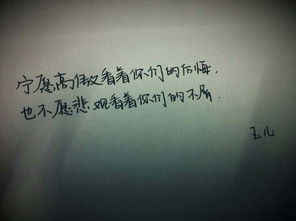 宁愿高傲看着你们的后悔.
也不愿悲观看着你们的不屑.
玉儿